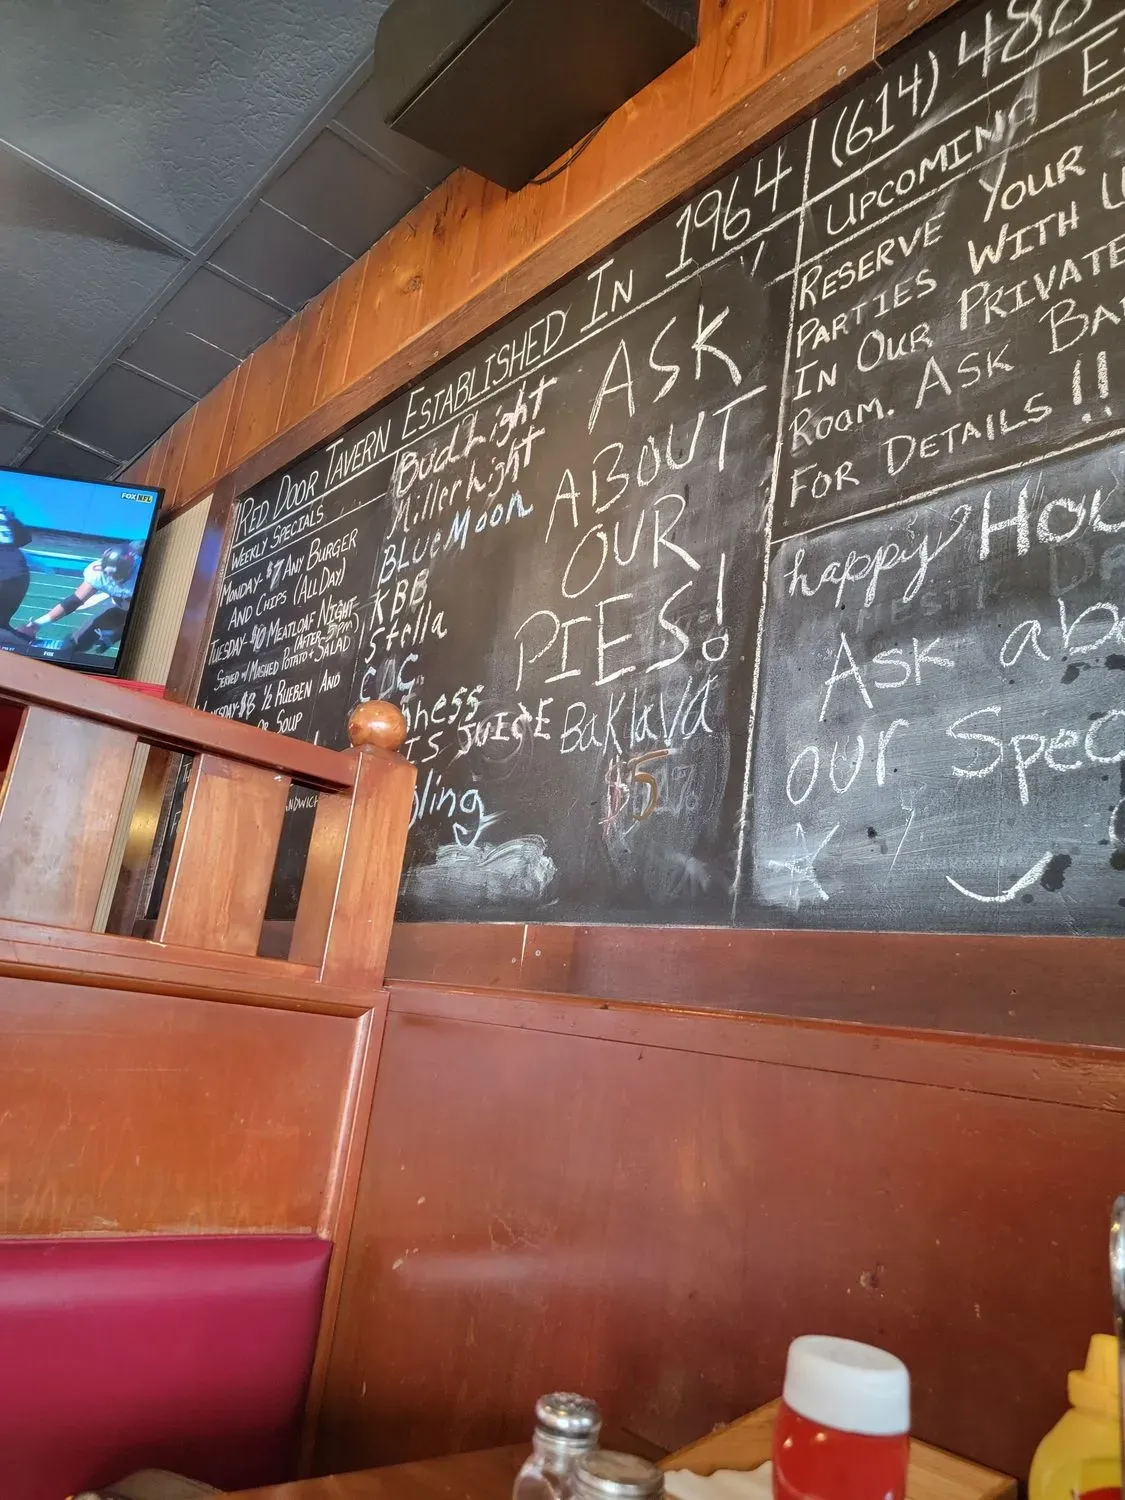 RED DOOR TAVERN ESTABLISHED IN 1964
(614) 488
WEEKLY SPECIALS
MONDAY- $7 ANY BURGER
AND CHIPS (ALL DAY)
TUESDAY- $10 MEATLOAF NIGHT
AFTER
SERVED w/ MASHED POTATO + SALAD
$8 ½ RUEBEN AND
SOUP
Bud Light
Miller Light
BLUE MOON
KBB
Stella
JUICE
ling
ASK
ABOUT
OUR
PIES!
BaKlava
$5
UPCOMING E
RESERVE YOUR
PARTIES WITH U
IN OUR PRIVATE
ROOM. ASK BAR
FOR DETAILS!!
happy HOU
ASK abo
our Spec
FOX NFL
FOX